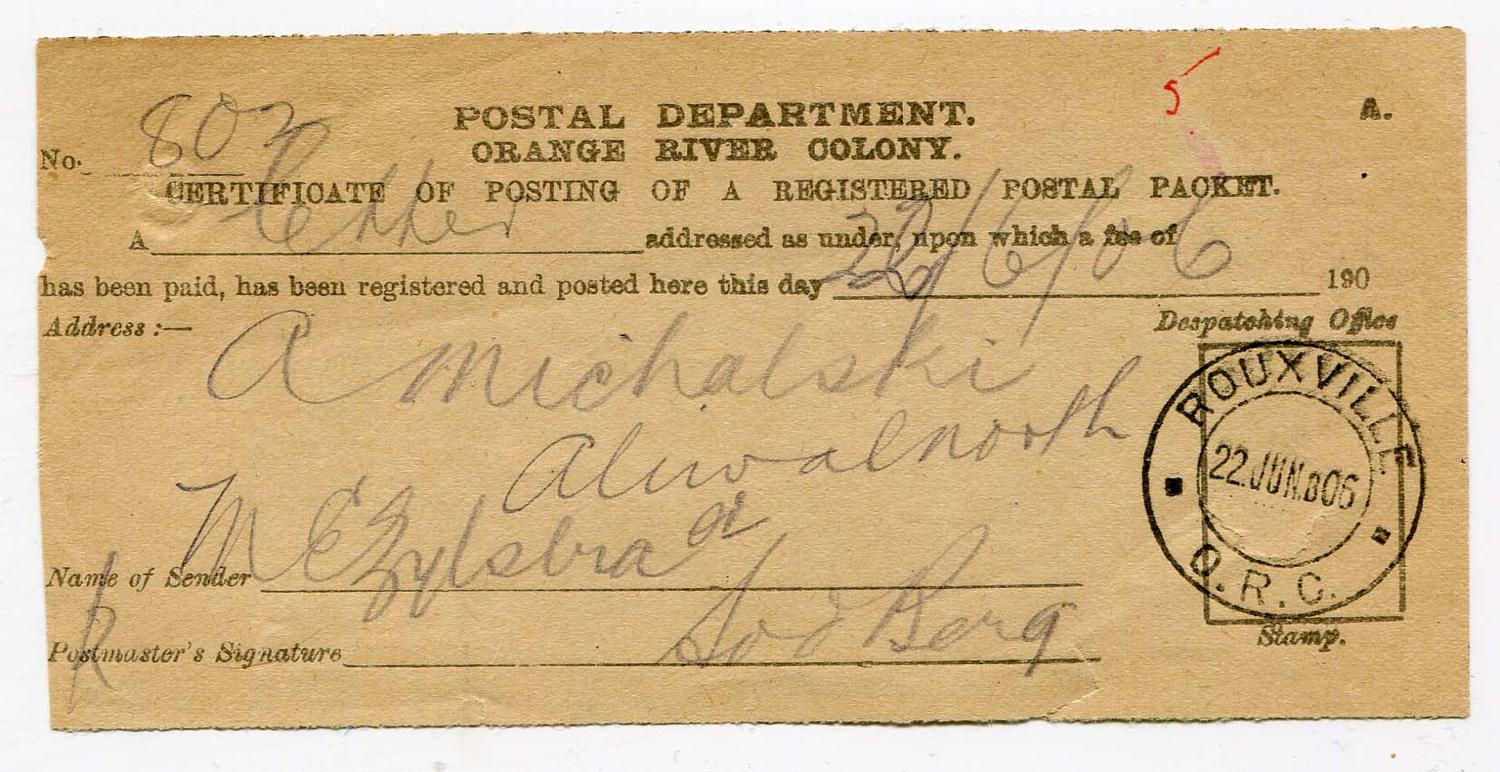 5
POSTAL DEPARTMENT. A.
ORANGE RIVER COLONY.
No. 807
CERTIFICATE OF POSTING OF A REGISTERED POSTAL PACKET.
A Letter addressed as under, upon which a fee of
has been paid, has been registered and posted here this day 22/6/06 190
Address :— Despatching Office
A Michalski
Aliwalnorth
ROUXVILLE
22.JUN.B06
O.R.C.
Name of Sender M E Zylstra
Stamp.
Postmaster's Signature Berg